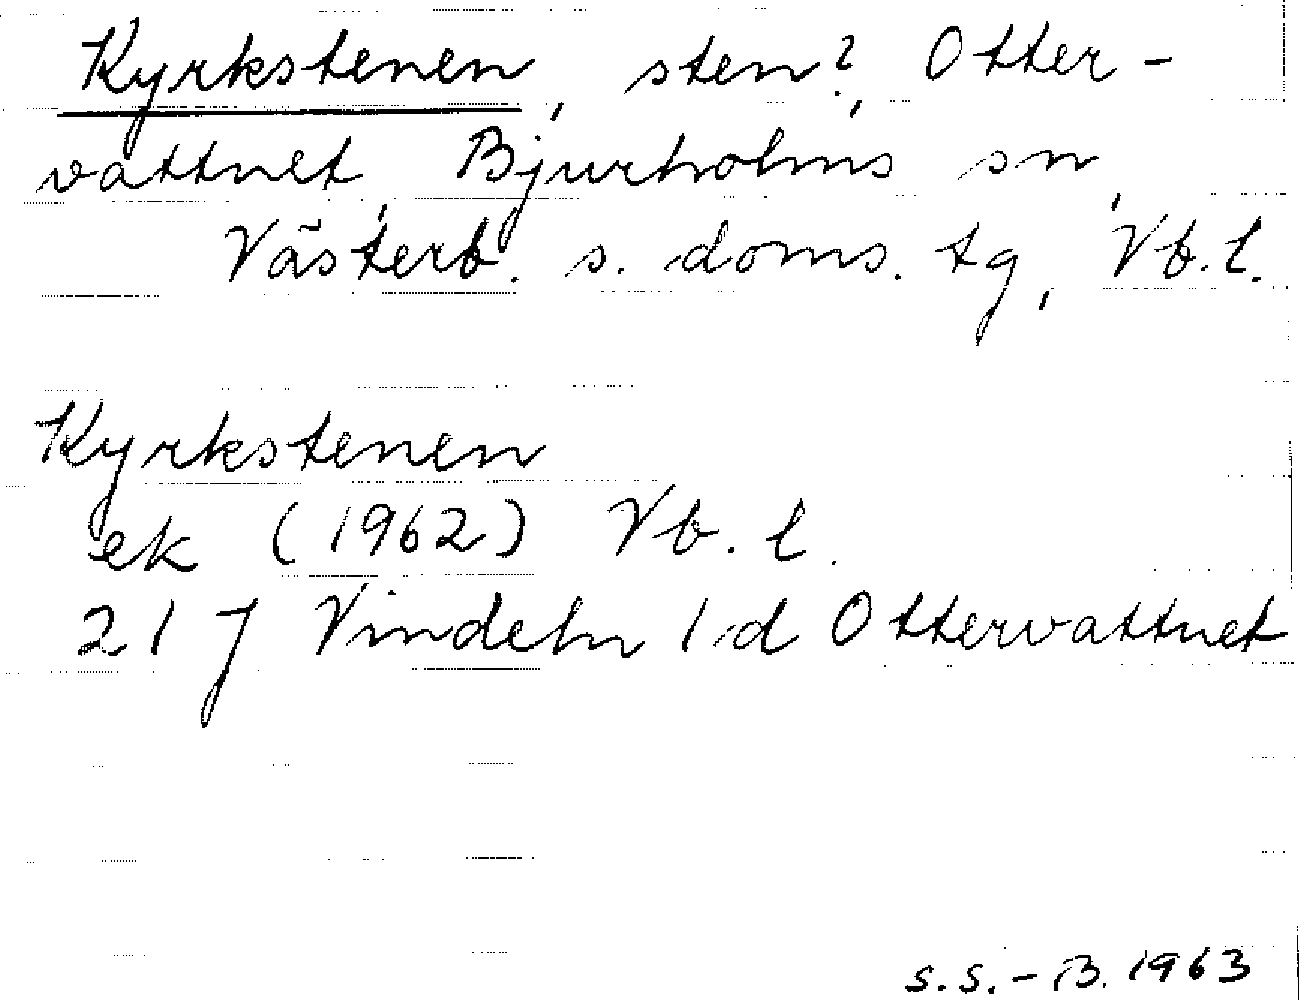 Kyrkstenen, sten?, Otter-
vattnet, Bjurholms sn,
Västerb. s. doms. tg, Vb. l.
Kyrkstenen
ek (1962) Vb. l.
21 J Vindeln 1 d Ottervattnet
S.S. - B. 1963